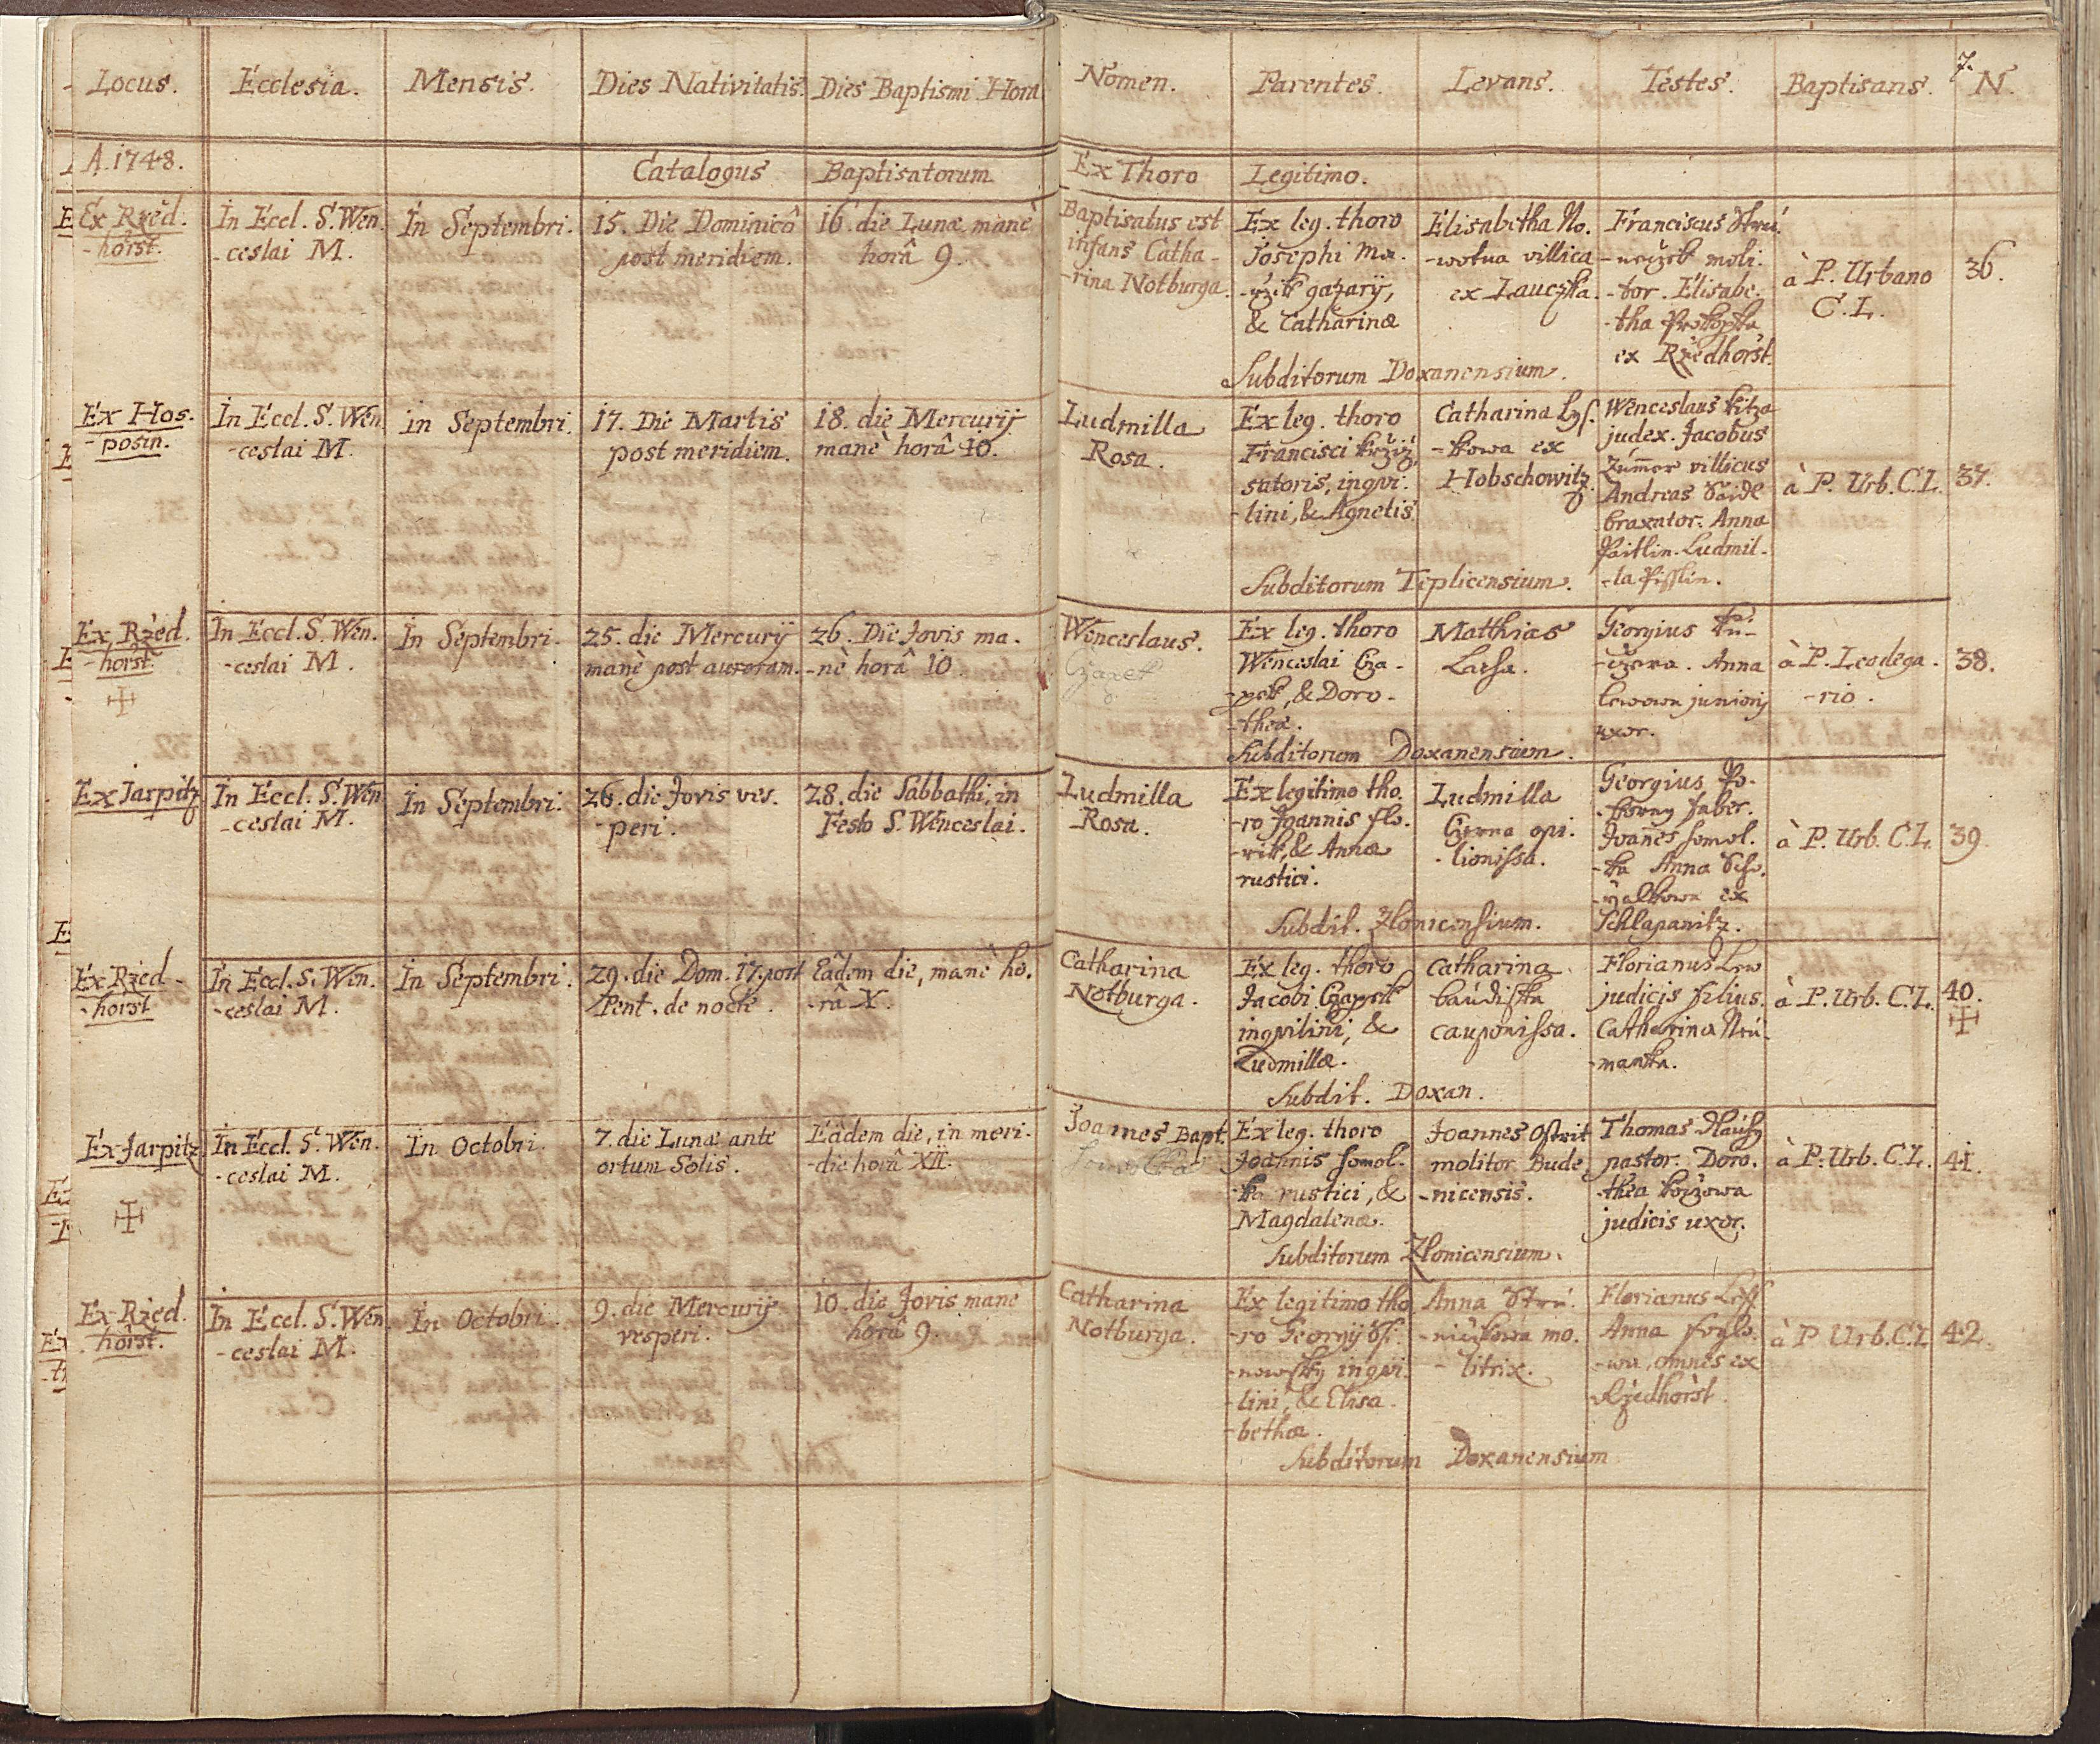 7.
Locus. Ecclesia. Mensis. Dies Nativitatis. Dies Baptismi. Hora Nomen. Parentes. Levans. Testes. Baptisans. N.
A. 1748. Catalogus Baptisatorum Ex Thoro Legitimo.
Ex Rżed.
-horst.
In Eccl. S. Wen.
-ceslai M.
In Septembri.
15. Die Dominicâ
post meridiem.
16. die Lunæ manè
horâ 9.
Baptisatus est
infans Catha-
-rina Notburga.
Ex leg. thoro
Josephi Ma-
gazarÿ,
& Catharinæ
Subditorum Doxanensium.
Elisabetha No.
-wotna villica
ex Lauczka.
Franciscus
moli.
-tor. Elisabe.
-tha Prokopka
ex Rżedhorst.
à P. Urbano
C. L.
36.
Ex Hos.
-posin.
In Eccl. S. Wen
-ceslai M.
in Septembri.
17. Die Martis
post meridiem.
18. die Mercurij
manè horâ 10.
Ludmilla
Rosa.
Ex leg. thoro
Francisci
sutoris, inqvi.
-lini, & Agnetis.
Subditorum Teplicensium.
Catharina
-kowa ex
Hobschowitz.
Wenceslaus Kitza
judex. Jacobus
villicus
Andreas
braxator. Anna
Paitlin. Ludmil-
-la
à P. Urb. C. L.
37.
Ex Rżed.
-horst.
In Eccl. S. Wen.
-ceslai M.
In Septembri.
25. die Mercurij
manè post auroram.
26. Die Jovis ma.
-nè horâ 10.
Wenceslaus.
Czapek
Ex leg. thoro
Wenceslai Cza-
-pek, & Doro-
-theæ.
Subditorum Doxanensium.
Matthias
Georgius
Anna
junioris
uxor.
à P. Leodega.
-rio.
38.
Ex Jarpitz
In Eccl. S. Wen
-ceslai M.
In Septembri.
26. die Jovis ves.
-peri.
28. die Sabbathi, in
Festo S. Wenceslai.
Ludmilla
Rosa.
Ex legitimo tho.
-ro Joannis Flo.
-rik, & Annæ
rustici.
Subdit. Zlonicensium.
Ludmilla
Czerna opi.
-lionissa.
Georgius Po.
-korny faber.
Joañes Somol.
-ka Anna
ex
Schlapanitz.
à P. Urb. C. L.
39.
Ex Rżed-
-horst
In Eccl. S. Wen.
-ceslai M.
In Septembri.
29. die Dom. 17. post
Pent. de nocte.
Eâdem die, manè ho.
-râ X.
Catharina
Notburga.
Ex leg. thoro
Jacobi Czapek
inqvilini, &
Ludmillæ.
Subdit. Doxan.
Catharina
cauponissa.
Florianus Lew
judicis filius.
Catharina Neü.
-manka.
à P. Urb. C. L.
40.
Ex Jarpitz
In Eccl. S. Wen.
-ceslai M.
In Octobri.
7. die Lunæ ante
ortum Solis.
Eâdem die, in meri.
-die horâ XII.
Joannes Bapt.
Ex leg. thoro
Joannis Somol.
-ka rustici, &
Magdalenæ.
Subditorum Zlonicensium.
Joannes Ostrit
molitor Bude
-nicensis.
Thomas
pastor. Doro.
-thea
judicis uxor.
à P. Urb. C. L.
41.
Ex Rżed.
horst.
In Eccl. S. Wen
-ceslai M.
In Octobri.
9. die Mercurij
vesperi.
10. die Jovis manè
horâ 9.
Catharina
Notburga.
Ex legitimo tho
-ro Georgij
inqvi.
-lini, & Elisa.
-bethæ.
Subditorum Doxanensium
Anna
mo.
-litrix.
Florianus
Anna
-wa, omnes ex
Rżedhorst.
à P. Urb. C. L
42.